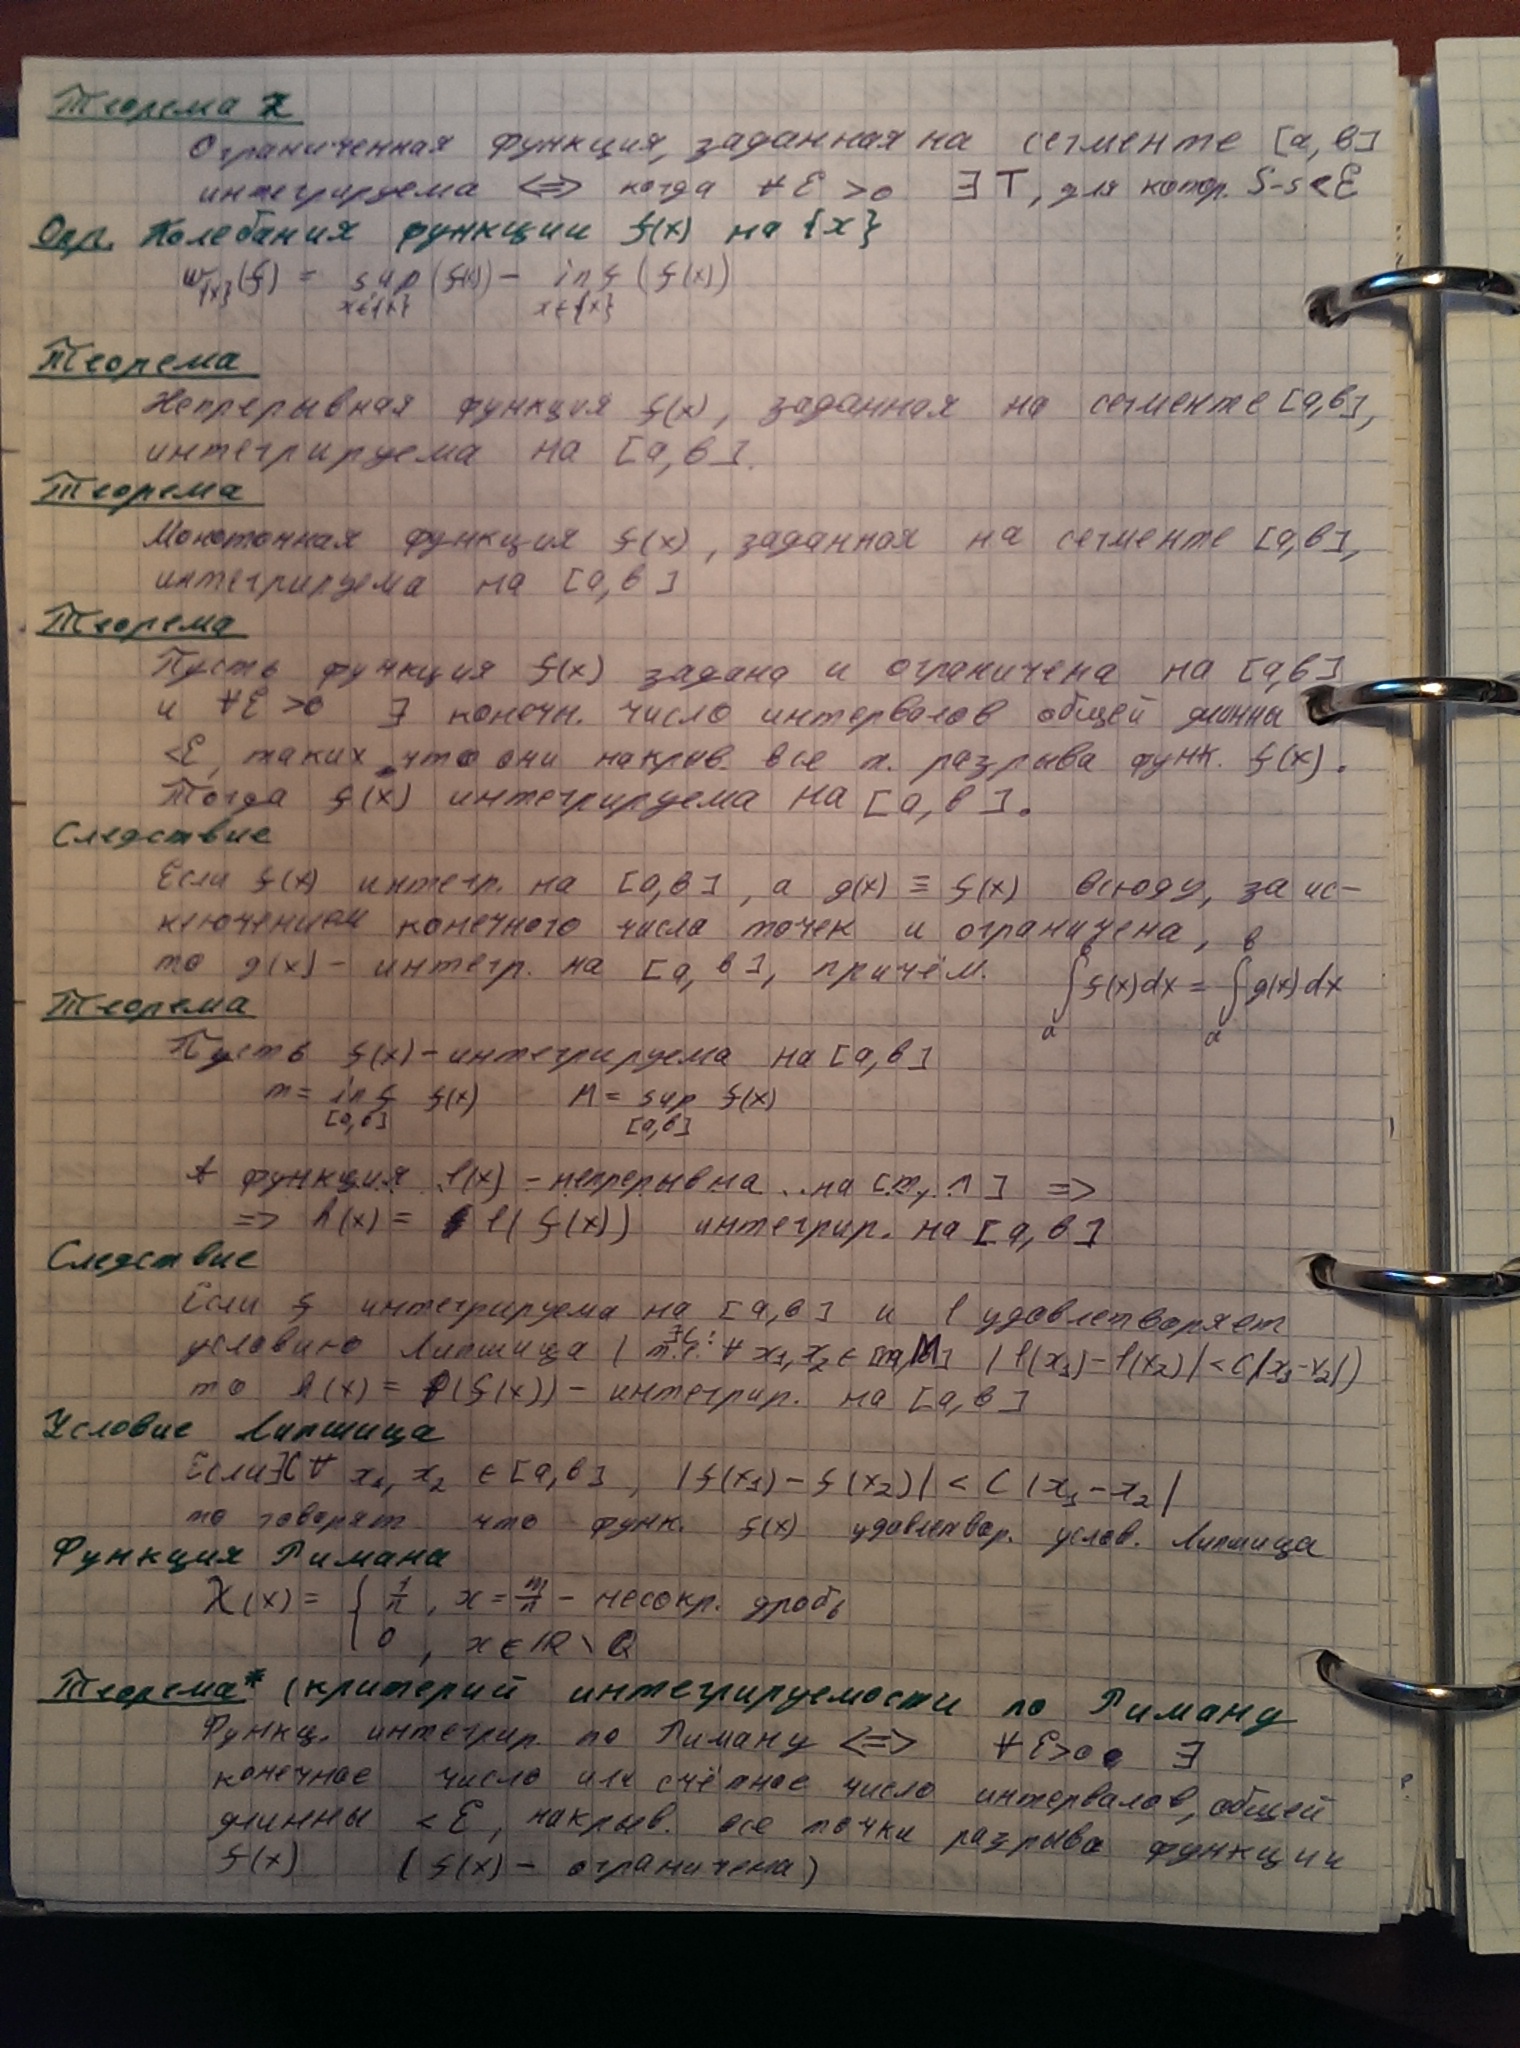 Теорема 2
Ограниченная функция, заданная на сегменте [a, b]
интегрируема <=> когда ∀ε >0 ∃T, для котор. S-s<ε
Опр. Колебания функции f(x) на {x}
w{x}(f) = sup x∈{x} (f(x)) - inf x∈{x} (f(x))
Теорема
Непрерывная функция f(x), заданная на сегменте [a,b],
интегрируема на [a,b].
Теорема
Монотонная функция f(x), заданная на сегменте [a,b],
интегрируема на [a,b]
Теорема
Пусть функция f(x) задана и ограничена на [a,b]
и ∀ε >0 ∃ конечн. число интервалов общей длинны
<ε, таких что они накрыв. все т. разрыва функ. f(x).
Тогда f(x) интегрируема на [a,b].
Следствие
Если f(x) интегр. на [a,b], а g(x) ≡ f(x) всюду, за ис-
ключением конечного числа точек и ограничена,
то g(x) - интегр. на [a,b], причём. ∫ₐᵇ f(x)dx = ∫ₐ g(x)dx
Теорема
Пусть f(x) - интегрируема на [a,b]
m = inf [a,b] f(x) M = sup [a,b] f(x)
А функция l(x) - непрерывна на [m, M] =>
=> h(x) = l(f(x)) интегрир. на [a,b]
Следствие
Если f интегрируема на [a,b] и l удовлетворяет
условию Липшица (т.е. ∃C: ∀ x₁,x₂ ∈ [m,M] |l(x₁)-l(x₂)|<C|x₁-x₂|)
то h(x) = l(f(x)) - интегрир. на [a,b]
Условие Липшица
Если ∃C ∀ x₁, x₂ ∈ [a,b], |f(x₁) - f(x₂)| < C |x₁-x₂|
то говорят что функ. f(x) удовлетвор. услов. Липшица
Функция Римана
X(x) = { 1/n, x = m/n - несокр. дробь
0, x∈ℝ\Q
Теорема* (критерий интегрируемости по Риману
Функц. интегрир. по Риману <=> ∀ε>0 ∃
конечное число или счётное число интервалов, общей
длинны <ε, накрыв. все точки разрыва функции
f(x) (f(x) - ограничена)